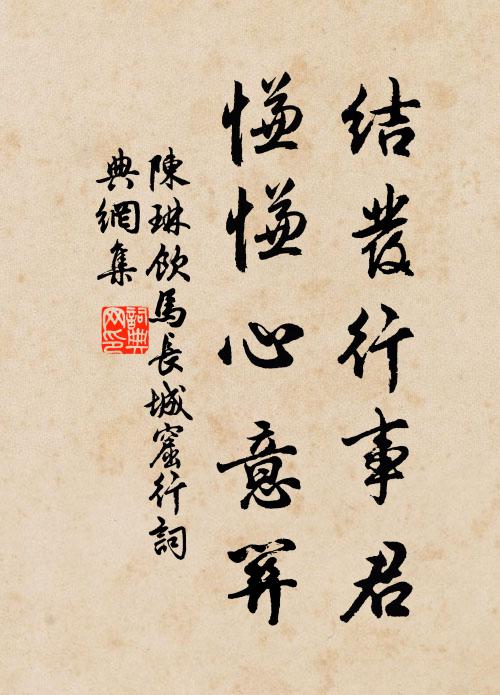 結發行事君
慊慊心意關
陳琳飲馬長城窟行詞
典網集
詞典
网印